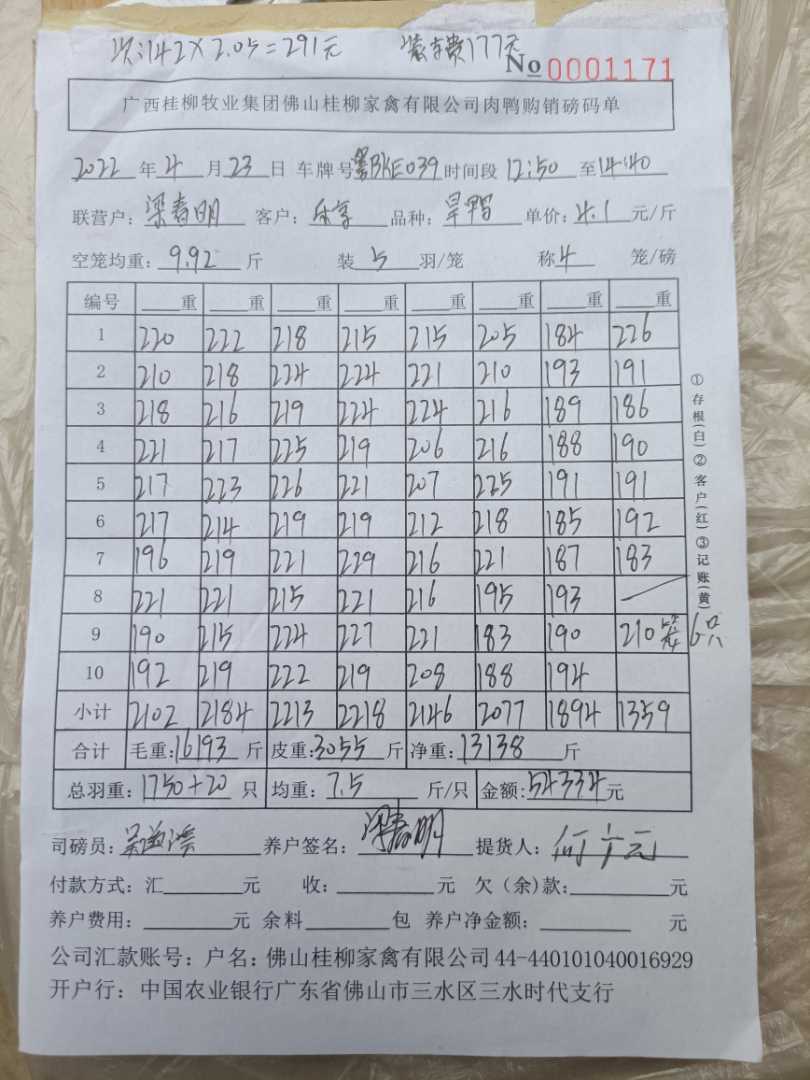 次:142×2.05=291元 装车费177元
No 0001171
广西桂柳牧业集团佛山桂柳家禽有限公司肉鸭购销磅码单
2022年4月23日 车牌号粤BKE039时间段12:50至14:40
联营户:梁春明 客户: 品种:旱鸭 单价:4.1元/斤
空笼均重:9.92斤 装5羽/笼 称4笼/磅
编号 重 重 重 重 重 重 重 重
1 220 222 218 215 215 205 184 226
2 210 218 224 224 221 210 193 191
3 218 216 219 224 224 216 189 186
4 221 217 225 219 206 216 188 190
5 217 223 226 221 207 225 191 191
6 217 214 219 219 212 218 185 192
7 196 219 221 229 216 221 187 183
8 221 221 215 221 216 195 193
9 190 215 224 227 221 183 190 210 6只
10 192 219 222 219 208 188 194
小计 2102 2184 2213 2218 2146 2077 1894 1359
合计 毛重:16193斤 皮重:3055斤 净重:13138斤
总羽重:1750+20只 均重:7.5斤/只 金额:54334元
司磅员: 养户签名:梁春明 提货人:
付款方式:汇元 收:元 欠(余)款:元
养户费用:元 余料包 养户净金额:元
公司汇款账号:户名:佛山桂柳家禽有限公司44-440101040016929
开户行:中国农业银行广东省佛山市三水区三水时代支行
①存根(白)②客户(红)③记账(黄)